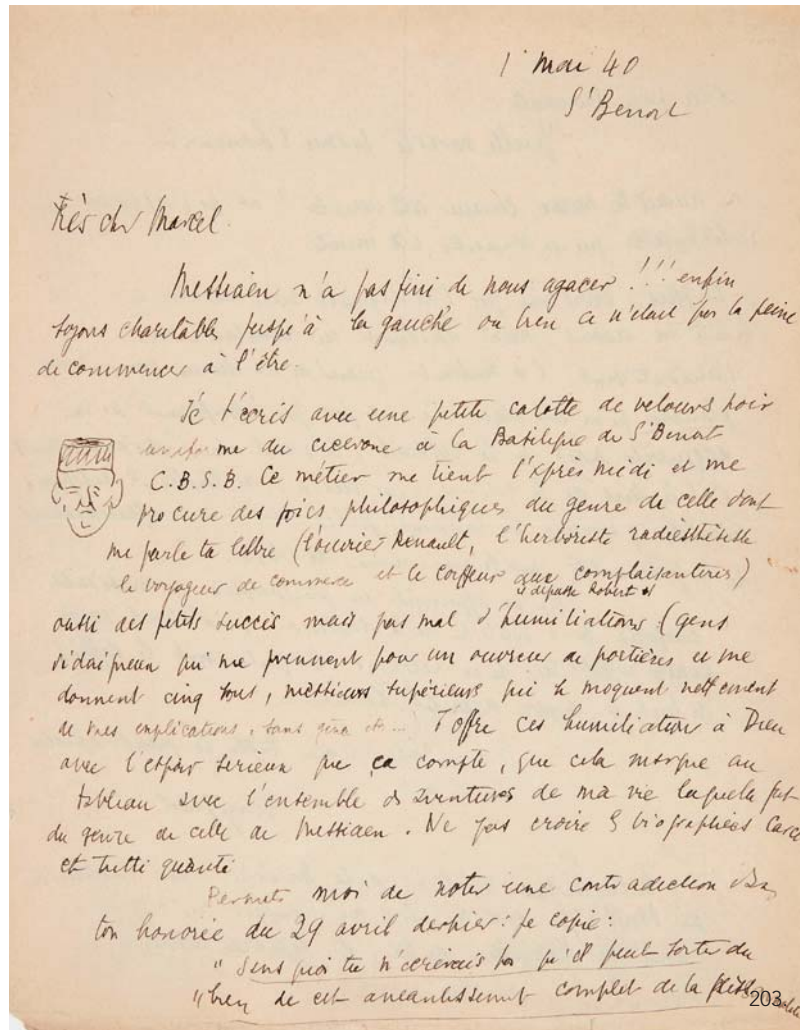 1 mai 40
St Benoit
Très cher Marcel
Messiaen n'a pas fini de nous agacer !!! enfin
soyons charitables jusqu'à la gauche ou bien ce n'était pas la peine
de commencer à l'être.
Je t'écris avec une petite calotte de velours noir
uniforme du cicerone à la Basilique de St Benoit
C.B.S.B. Ce métier me tient l'après midi et me
procure des joies philosophiques du genre de celle dont
me parle ta lettre (l'ouvrier Renault, l'herboriste radiesthésiste
le voyageur de commerce et le coiffeur aux complaisanteries)
dépasse Robert
aussi des petits succès mais pas mal d'humiliations (gens
dédaigneux qui me prennent pour un ouvreur de portières et me
donnent cinq sous, messieurs supérieurs qui se moquent nettement
de mes explications, sans gêne etc... J'offre ces humiliation à Dieu
avec l'espoir serieux que ça compte, que cela marque au
tableau avec l'ensemble des aventures de ma vie laquelle fut
du genre de celle de Messiaen. Ne pas croire les biographies Carco
et tutti quanti
Permets moi de noter une contradiction dans
ton honorée du 29 avril dernier: je copie:
"Sans quoi tu n'écrirais pas qu'il peut sortir du
"bien de cet anéantissement complet de la
203